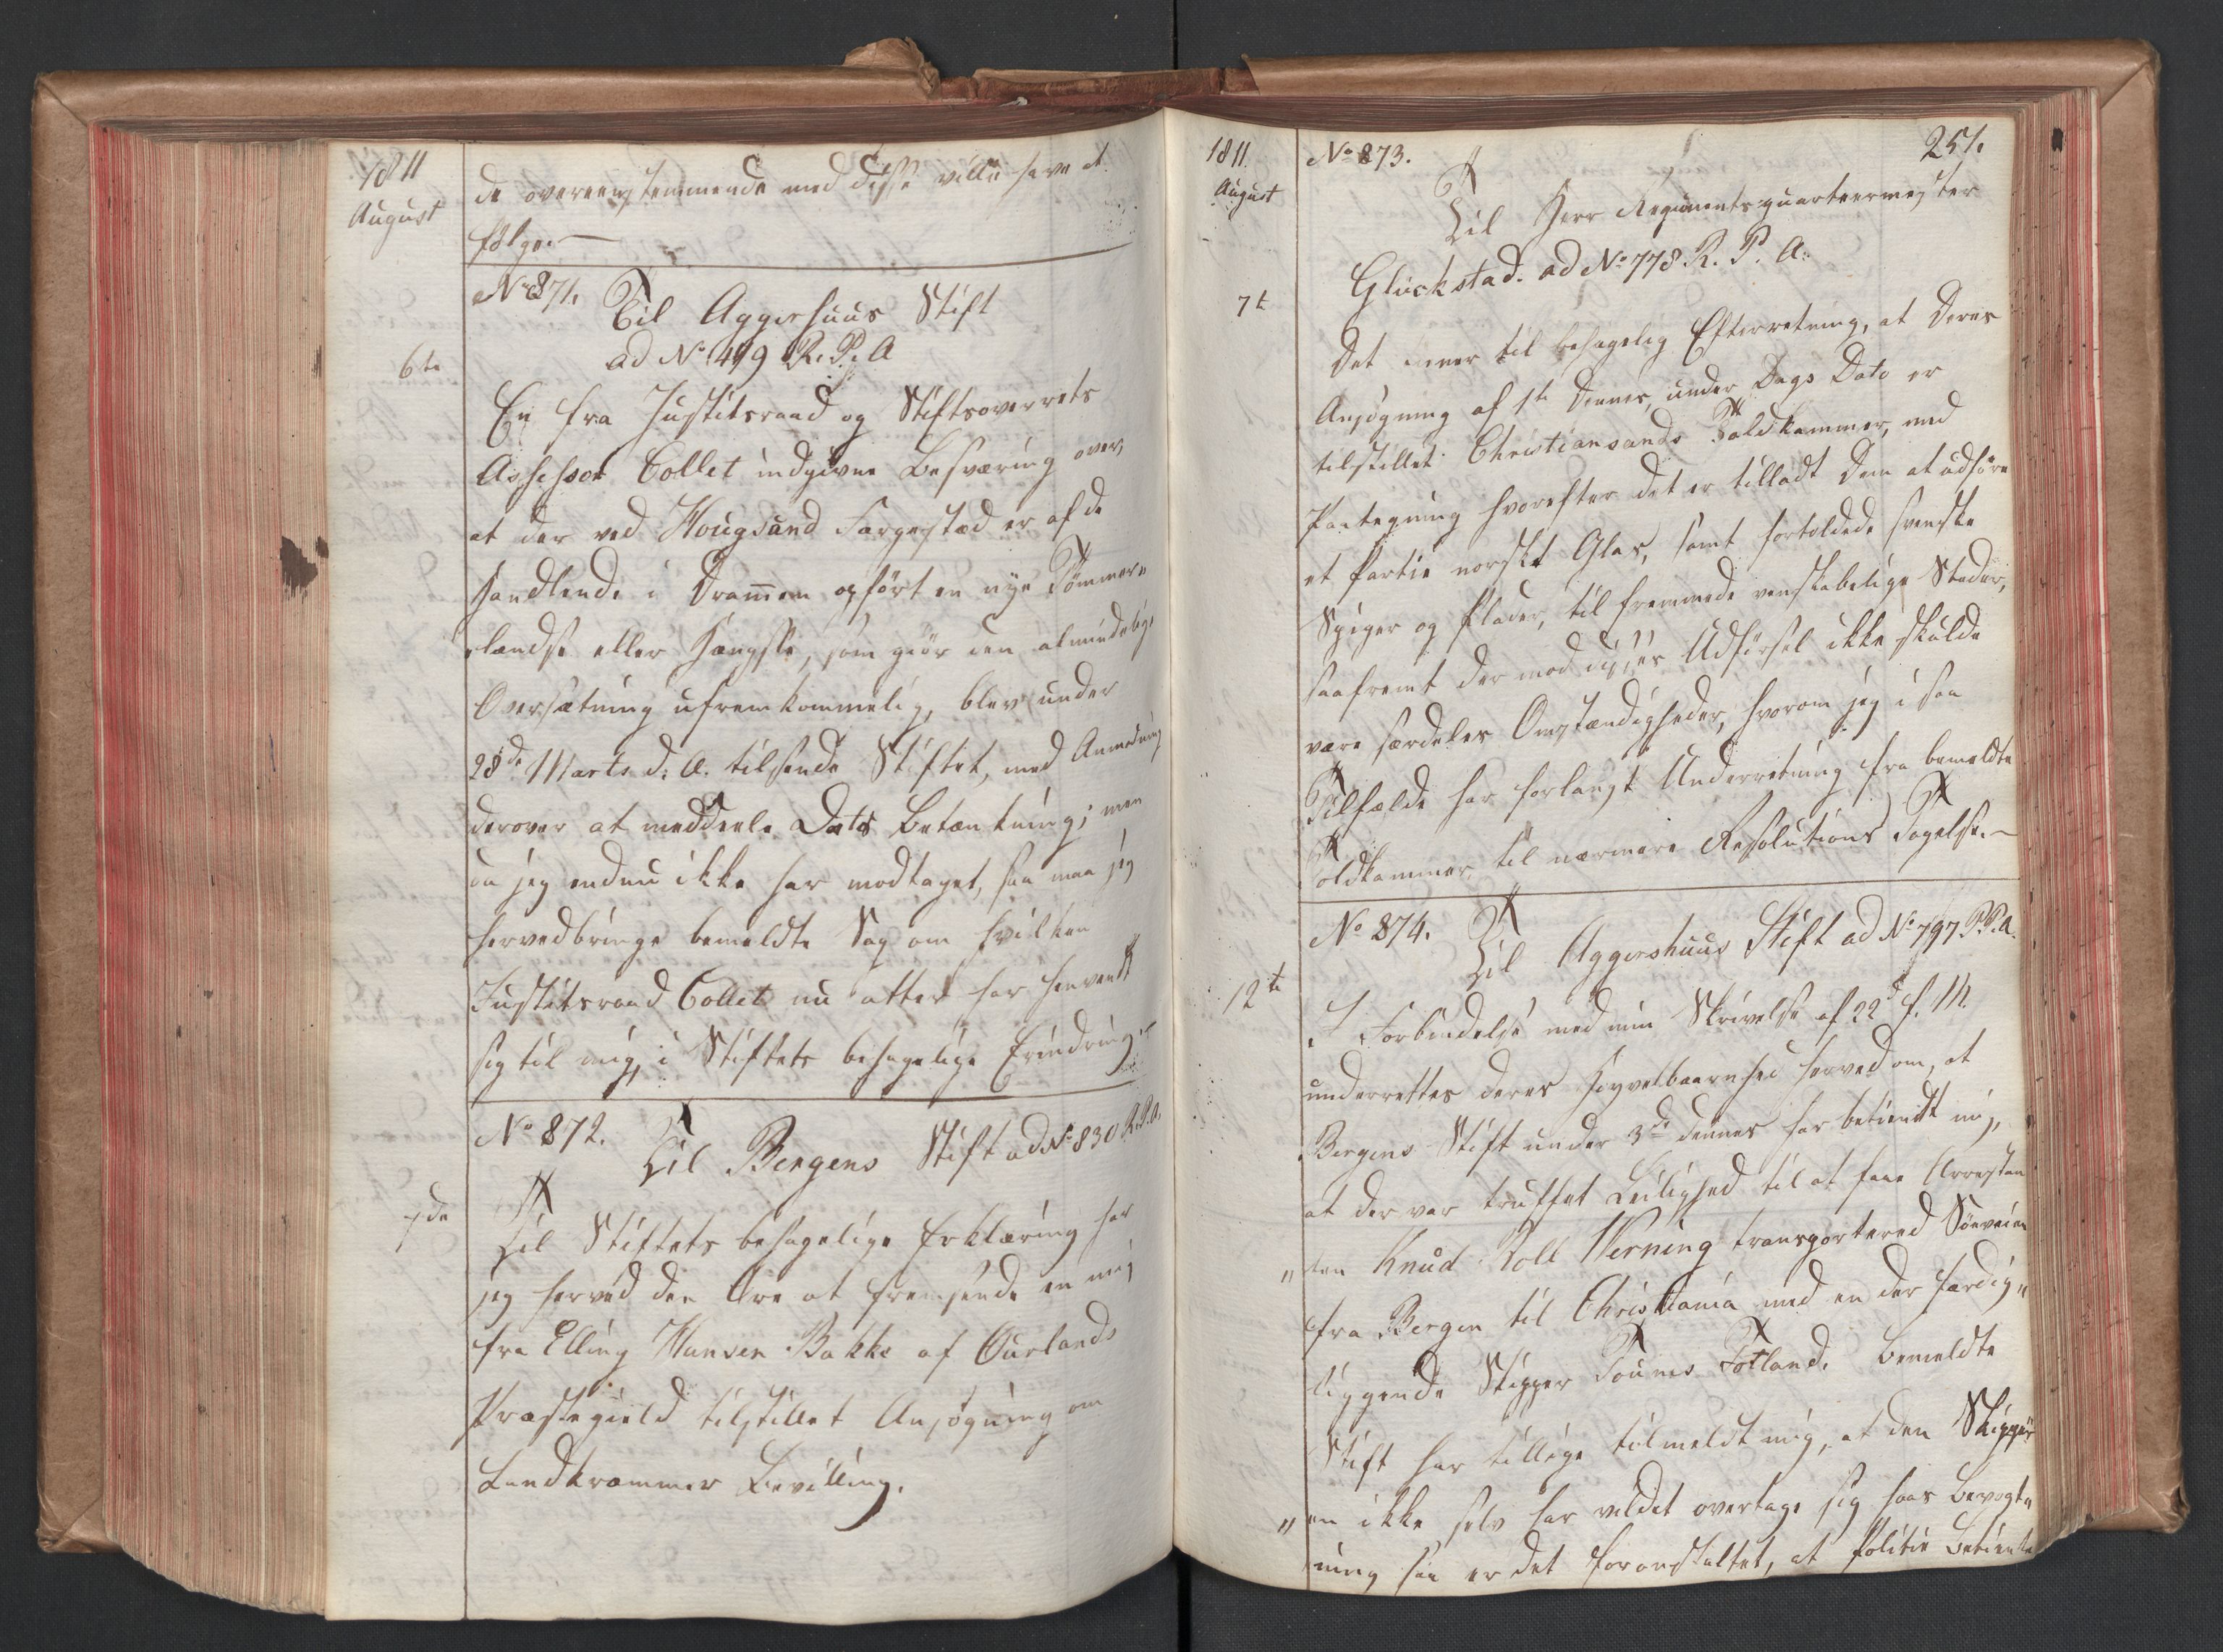 1811
August
de overeensstemmende med disse ville have at
følge.—
No 871.
Til Aggershuus Stift
ad No 499 R. P. A
6te
En fra Justitsraad og Stiftsoverrets
Assessor Collet indgiven Besværing over,
at der ved Hougsund Færgestæd er af de
Handlende i Drammen opført en nye Tømmer„
„lændse eller Hængsle, som giør den almindelige
Oversætning ufremkommelig, blev under
28de Marts d: A. tilsendt Stiftet, med Anmodning
derover at meddeele Dets Betænkning; men
da jeg endnu ikke har modtaget, saa maa jeg
herved bringe bemeldte Sag om hvilken
Justitsraad Collet nu atter har henvendt
sig til mig, i Stiftets behagelige Erindring.—
No 872.
Til Bergens Stift ad No 830 R. P. A.
7de
Til Stiftets behagelige Erklæring har
jeg herved den Ære at fremsende en mig
fra Elling Hansen Bakke af Ourlands
Præstegield tilstillet Ansøgning om
Landkrammer Bevilling.
1811
August
No 873.
251.
Til Herr Regimentsquarteermester
Glückstad. ad No 778 R. P. A.
7t
Det tiener til behagelig Efterretning, at Deres
Ansøgning af 1te dennes, under Dags Dato er
tilstillet Christiansands Toldkammer, med
Paategning hvorefter det er tilladt Dem at udføre
et Partie norskt Glas, samt fortoldede svenske
Spiger og Plader, til fremmede venskabelige Steder,
saafremt der mod disses Udførsel ikke skulde
være særdeles Omstændigheder, hvorom jeg i saa
Tilfælde har forlangt Underretning fra bemeldte
Toldkammer til nærmere Resolutions Tagelse.—
No 874.
Til Aggershuus Stift ad No 797 R. P. A.
12te
I Forbindelse med min Skrivelse af 22d f. M.
underrettes deres Høyvelbaarnhed herved om, at
Bergens Stift under 3de dennes har betiendt mig,
at der var truffet Leilighed til at faae Arrestan
„ten Knud Roll Verning transportered Søeveien
fra Bergen til Christiania med en der færdig„
liggende Skipper Tøunes Totland. Bemeldte
Stift har tillige tilmeldt mig, at den Skipper
„en ikke selv har vildet overtage sig hans Bevogt„
ning saa er det foranstaltet, at Politie Betiente